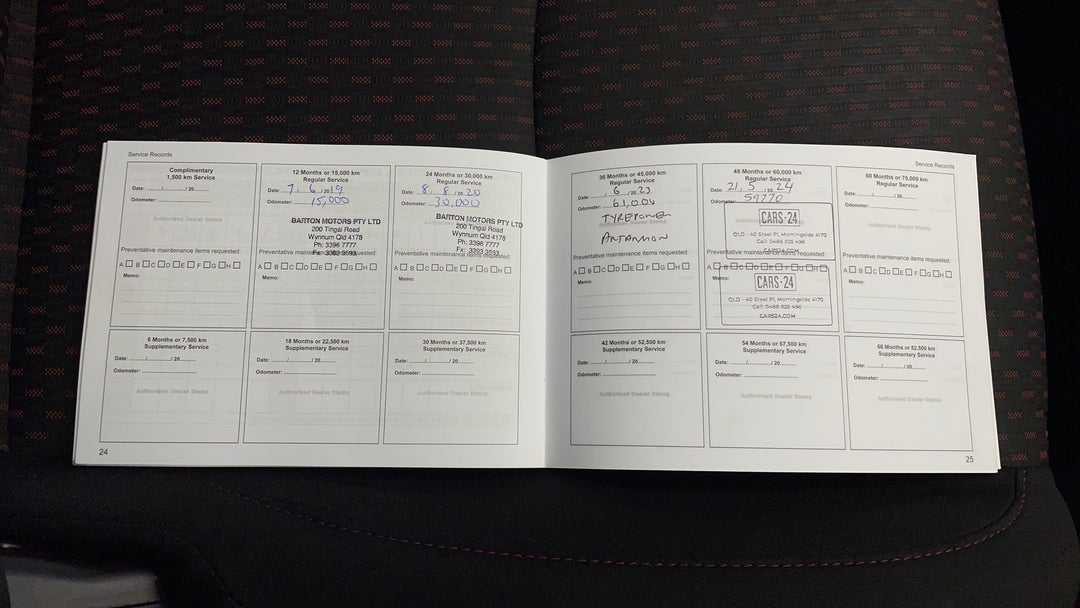 Service Records
Complimentary
1,500 km Service
Date: ____/____/ 20____
Odometer:
Authorised Dealer Stamp
Preventative maintenance items requested:
A B C D E F G H
Memo:
12 Months or 15,000 km
Regular Service
Date: 7 / 6 / 2019
Odometer: 15,000
BARTON MOTORS PTY LTD
200 Tingal Road
Wynnum Qld 4178
Ph: 3396 7777
Fx: 3393 3593
Preventative maintenance items requested:
A B C D E F G H
Memo:
24 Months or 30,000 km
Regular Service
Date: 8 / 8 / 2020
Odometer: 30,000
BARTON MOTORS PTY LTD
200 Tingal Road
Wynnum Qld 4178
Ph: 3396 7777
Fx: 3393 3593
Preventative maintenance items requested:
A B C D E F G H
Memo:
6 Months or 7,500 km
Supplementary Service
Date: ____/____/ 20____
Odometer:
Authorised Dealer Stamp
18 Months or 22,500 km
Supplementary Service
Date: ____/____/ 20____
Odometer:
Authorised Dealer Stamp
30 Months or 37,500 km
Supplementary Service
Date: ____/____/ 20____
Odometer:
Authorised Dealer Stamp
24
Service Records
36 Months or 45,000 km
Regular Service
Date: / 6 / 2023
Odometer: 61,004
Preventative maintenance items requested:
A B C D E F G H
Memo:
48 Months or 60,000 km
Regular Service
Date: 21 / 5 / 2024
Odometer: 59770
CARS·24
QLD - 40 Steel Pl, Morningside 4170
Call 0488 825 496
CARS24.COM
Preventative maintenance items requested:
A B C D E F G H
Memo:
CARS·24
QLD - 40 Steel Pl, Morningside 4170
Call 0488 825 496
CARS24.COM
60 Months or 75,000 km
Regular Service
Date: ____/____/ 20____
Odometer:
Authorised Dealer Stamp
Preventative maintenance items requested:
A B C D E F G H
Memo:
42 Months or 52,500 km
Supplementary Service
Date: ____/____/ 20____
Odometer:
Authorised Dealer Stamp
54 Months or 67,500 km
Supplementary Service
Date: ____/____/ 20____
Odometer:
Authorised Dealer Stamp
66 Months or 82,500 km
Supplementary Service
Date: ____/____/ 20____
Odometer:
Authorised Dealer Stamp
25